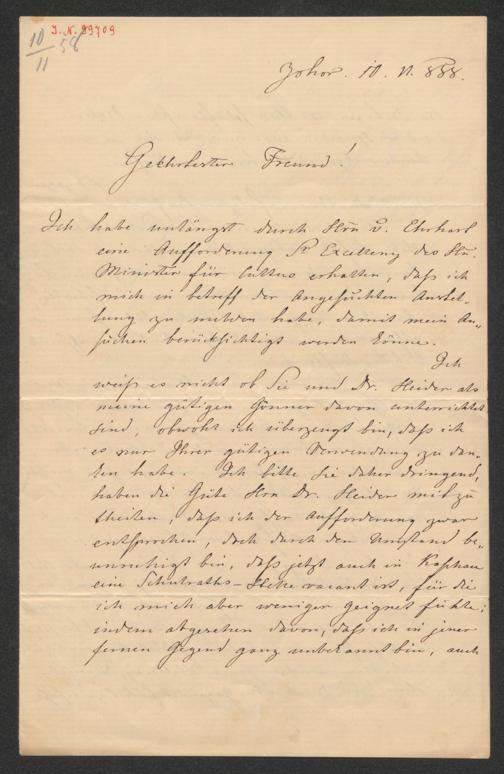 J. N. 99709
10/11 58
10. 11. 888.
Geehrtester Freund!
Ich habe unlängst durch Hrn v. Ehrhart
eine Aufforderung Sr Excellenz des Hn.
Minister für Cultus erhalten, daß ich
mich in betreff der angesuchten Anstel-
lung zu melden habe, damit mein An-
suchen berücksichtigt werden könne.
Ich
weiß es nicht ob Sie und Dr. Heider als
meine gütigen Gönner davon unterrichtet
sind, obwohl ich überzeugt bin, daß ich
es nur Ihrer gütigen Verwendung zu dan-
ken habe. Ich bitte Sie daher dringend,
haben die Güte Hrn Dr. Heider mitzu
theilen, daß ich der Aufforderung zwar
entsprochen, doch durch den Umstand be-
unruhigt bin, daß jetzt auch in Kaschau
eine Schulraths-Stelle vacant ist, für die
ich mich aber weniger geignet fühle;
indem abgesehen davon, daß ich in jener
fernen Gegend ganz unbekannt bin, auch